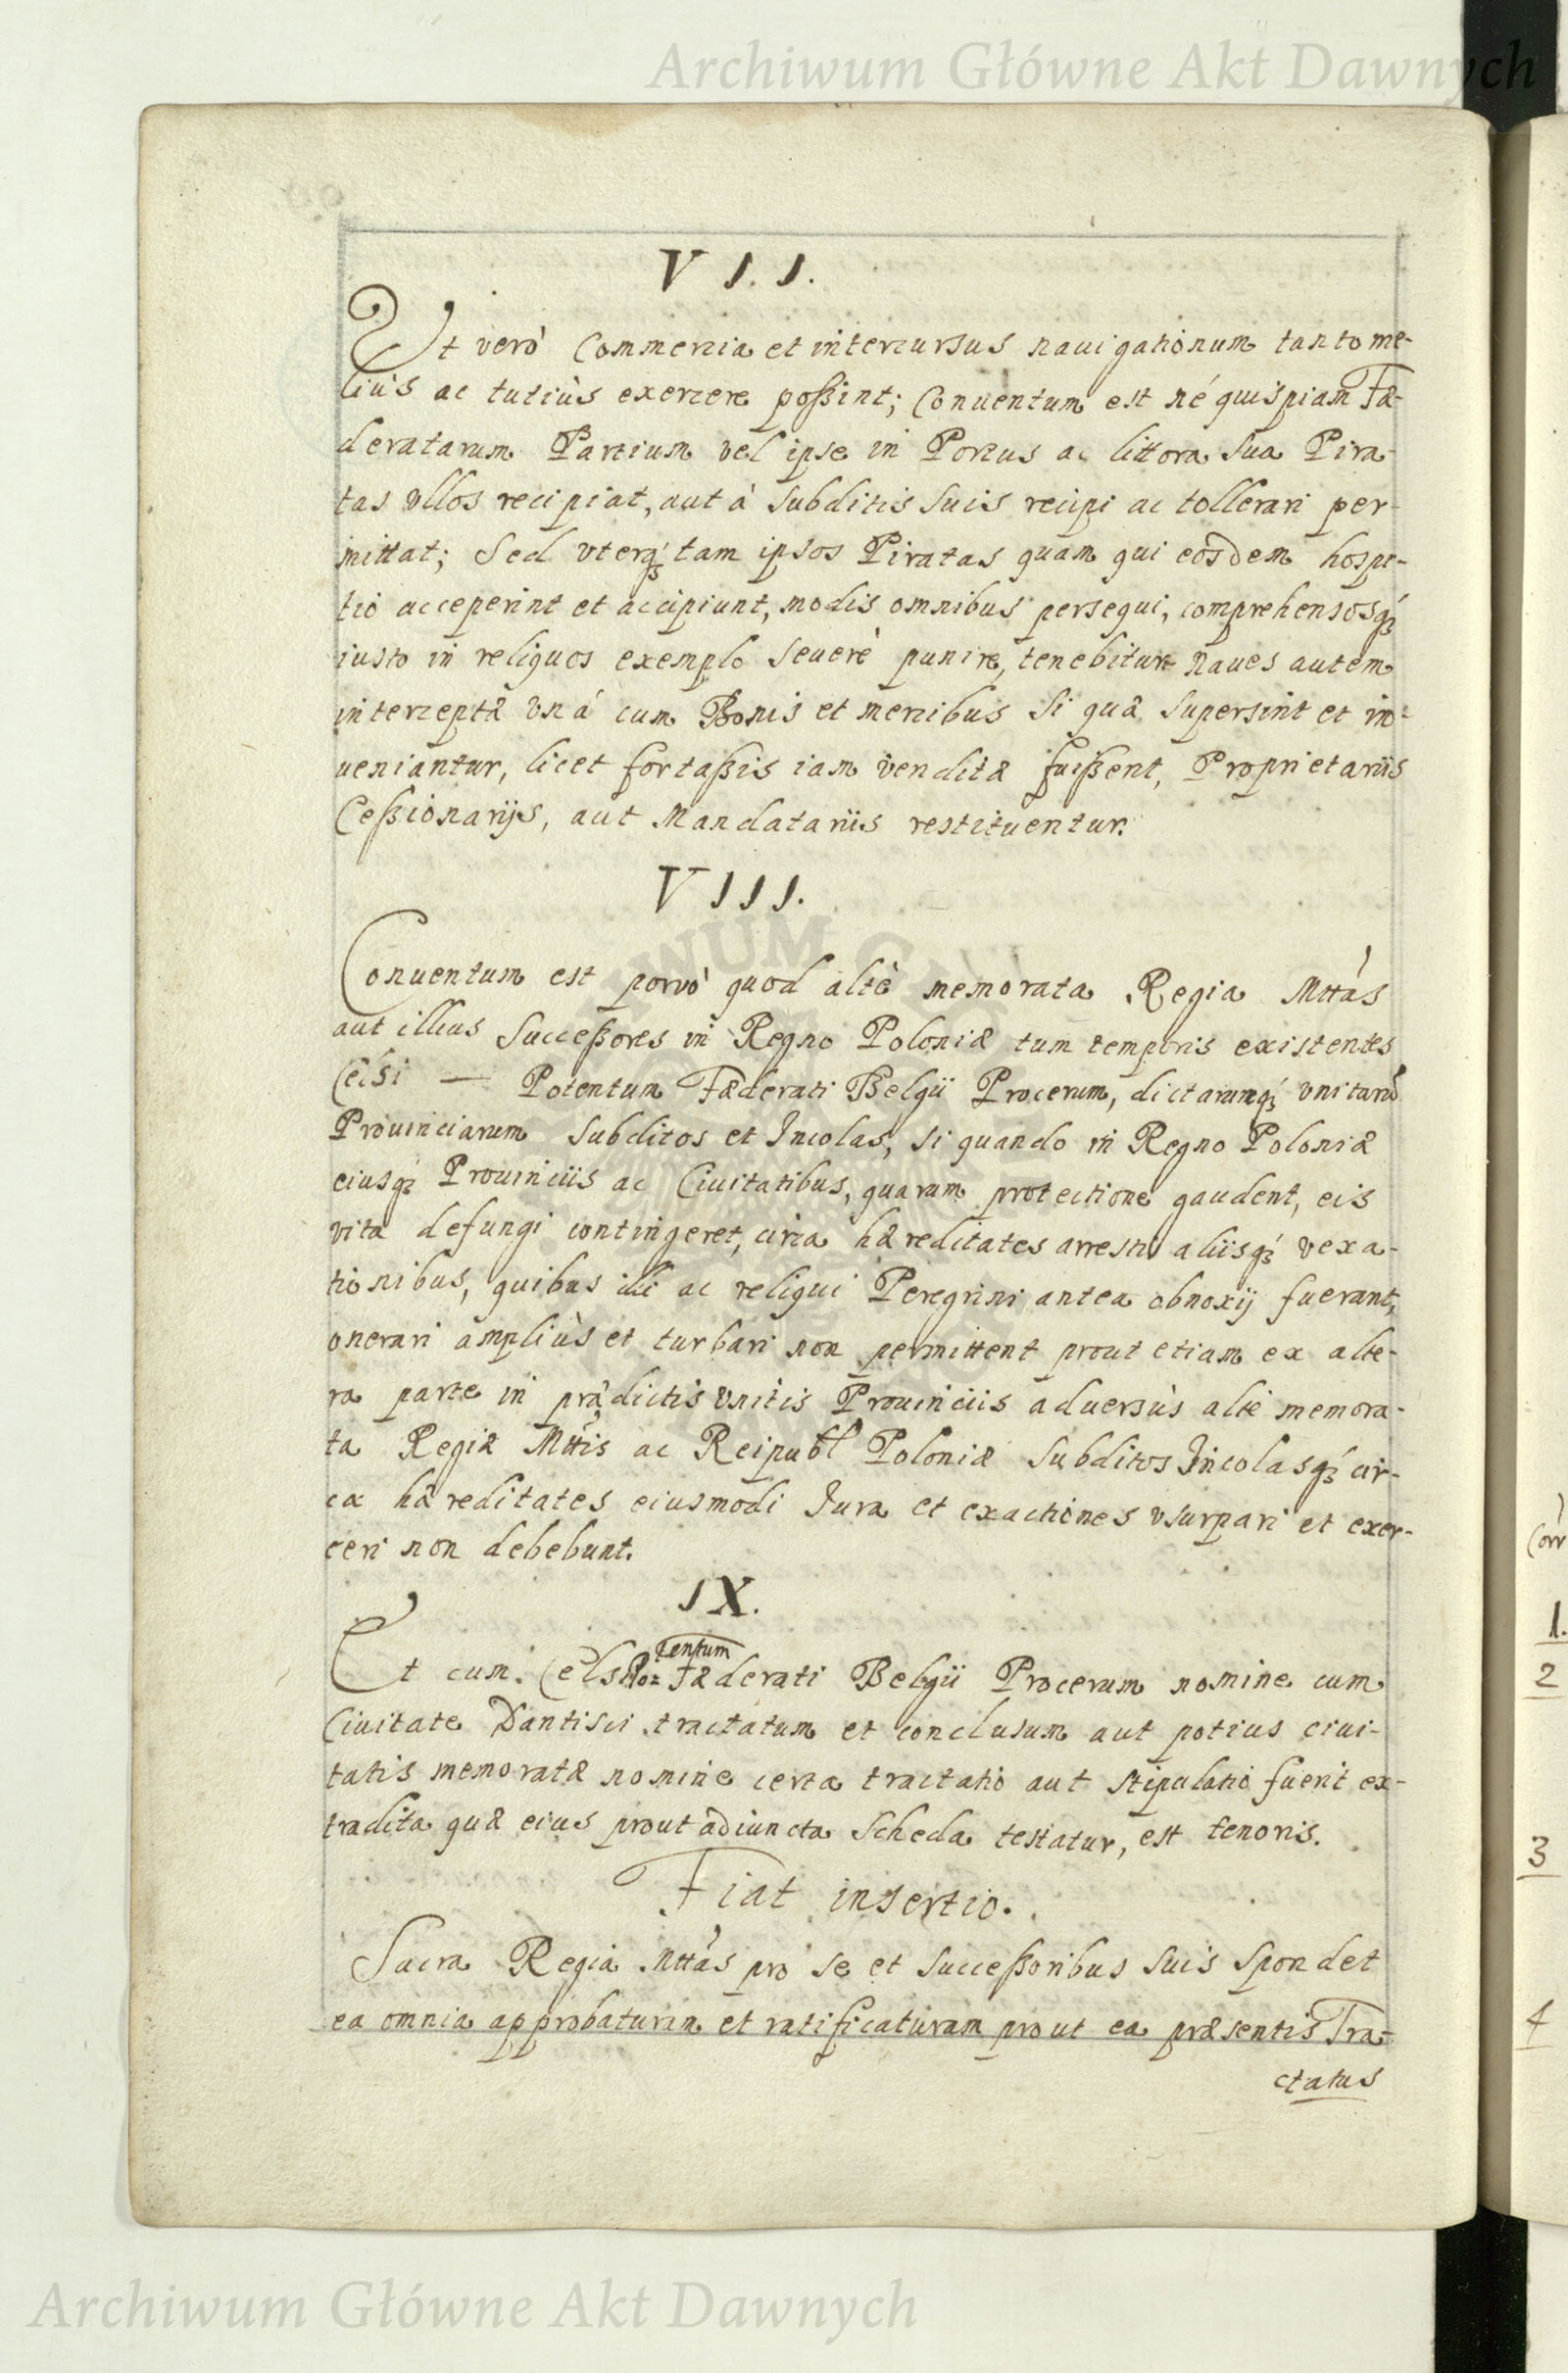 Archiwum Główne Akt Dawnych
VII.
Ut verò Commercia et intercursus nauigationum tanto me-
liùs ac tutiùs exercere poßint; Conuentum est né quispiam Fæ-
deratarum Partium vel ipse in Portus ac littora sua Pira-
tas vllos recipiat, aut à subditis suis recipi ac tollerari per-
mittat; Sed vterq́ꝫ tam ipsos Piratas quam qui eosdem hospi-
tio acceperint et accipiunt, modis omnibus persequi, comprehensosq́ꝫ
iusto in reliquos exemplo seuerè punire, tenebitur Naues autem
interceptæ vná cum Bonis et mercibus si quæ supersint et in-
ueniantur, licet fortaßis iam venditæ fuißent, Proprietariis
Ceßionarijs, aut Mandatariis restituentur.
VIII.
Conuentum est porrò quod altè memorata Regia Mttàs
aut illius Succeßores in Regno Poloniæ tum temporis existentes
Celsi — Potentum Fæderati Belgii Procerum, dictarumq́ꝫ vnitarū
Prouinciarum subditos et Incolas, si quando in Regno Poloniæ
eiusq́ꝫ Prouinciis ac Ciuitatibus, quarum protectione gaudent, eis
vita defungi contingeret, circa hæreditates arresto aliisq́ꝫ vexa-
tionibus, quibus illi ac reliqui Peregrini antea obnoxij fuerant,
onerari ampliùs et turbari non permittent prout etiam ex alte-
ra parte in prædictis vnitis Prouinciis aduersùs altè memora-
ta Regiæ Mttis ac Reipubl Poloniæ subditos Incolasq́ꝫ cir-
ca hæreditates eiusmodi Jura et exactiones vsurpari et exer-
ceri non debebunt.
IX.
Et cum Celsi Potentum Fæderati Belgii Procerum nomine cum
Ciuitate Dantisci tractatum et conclusum aut potius ciui-
tatis memoratæ nomine certa tractatio aut stipulatio fuerit ex-
tradita quæ eius prout adiuncta scheda testatur, est tenoris.
Fiat insertio.
Sacra Regia Mttàs pro se et succeßoribus suis spondet
ea omnia approbaturam et ratificaturam prout ea præsentis Tra-
ctatus
1.
2
3
4
Archiwum Główne Akt Dawnych